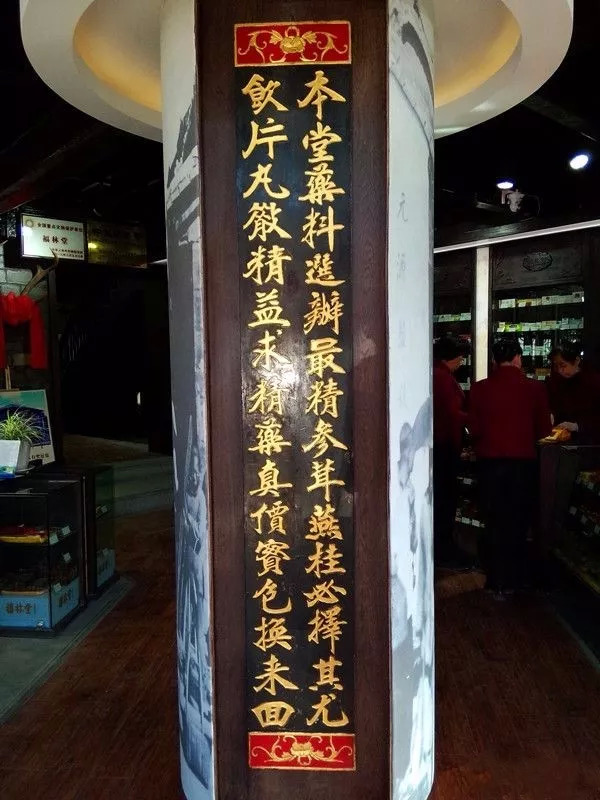 本堂藥料選辦最精參茸燕桂必擇其尤
飲片丸散精益求精藥真價實包換來回
福林堂
元
福林堂